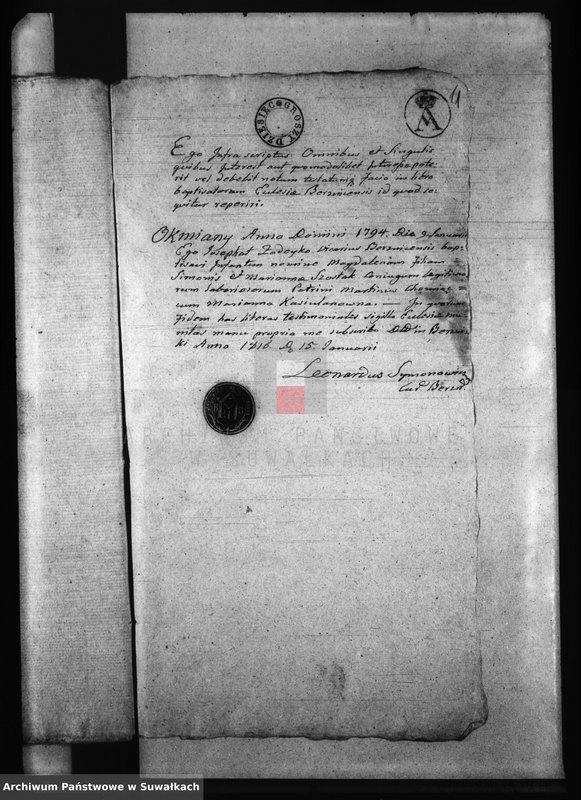 4
DZIESIĘC GROSZY
Ego Infra scriptus Omnibus et Singulis
quibus Interest aut quomodolibet Interesse pote-
rit vel debebit notum testatumq facio in libro
baptisatorum Eclesiæ Berznicensis id quod se-
quitur reperiri.
Okmiany Anno Domini 1794. Die 9 Januarii
Ego Josephat Zadeyko Vicarius Berznicensis bap-
tisavi Infantem nomine Magdalenam filiam
Simonis et Marianna Szostak Coniugum legitimo-
rum laboriosorum Patrini Martinus
cum Marianna Kasiulanowna. — In quorum
Fidem has literas testimoniales sigillo Eclesiæ mu-
nitas manu propria me subscribo in Berzni-
ki Anno 1816 D 15 Januarii
Leonardus Symonowicz
Cur Berzn.
ARCHIWUM PAŃSTWOWE
W SUWAŁKACH
Archiwum Państwowe w Suwałkach